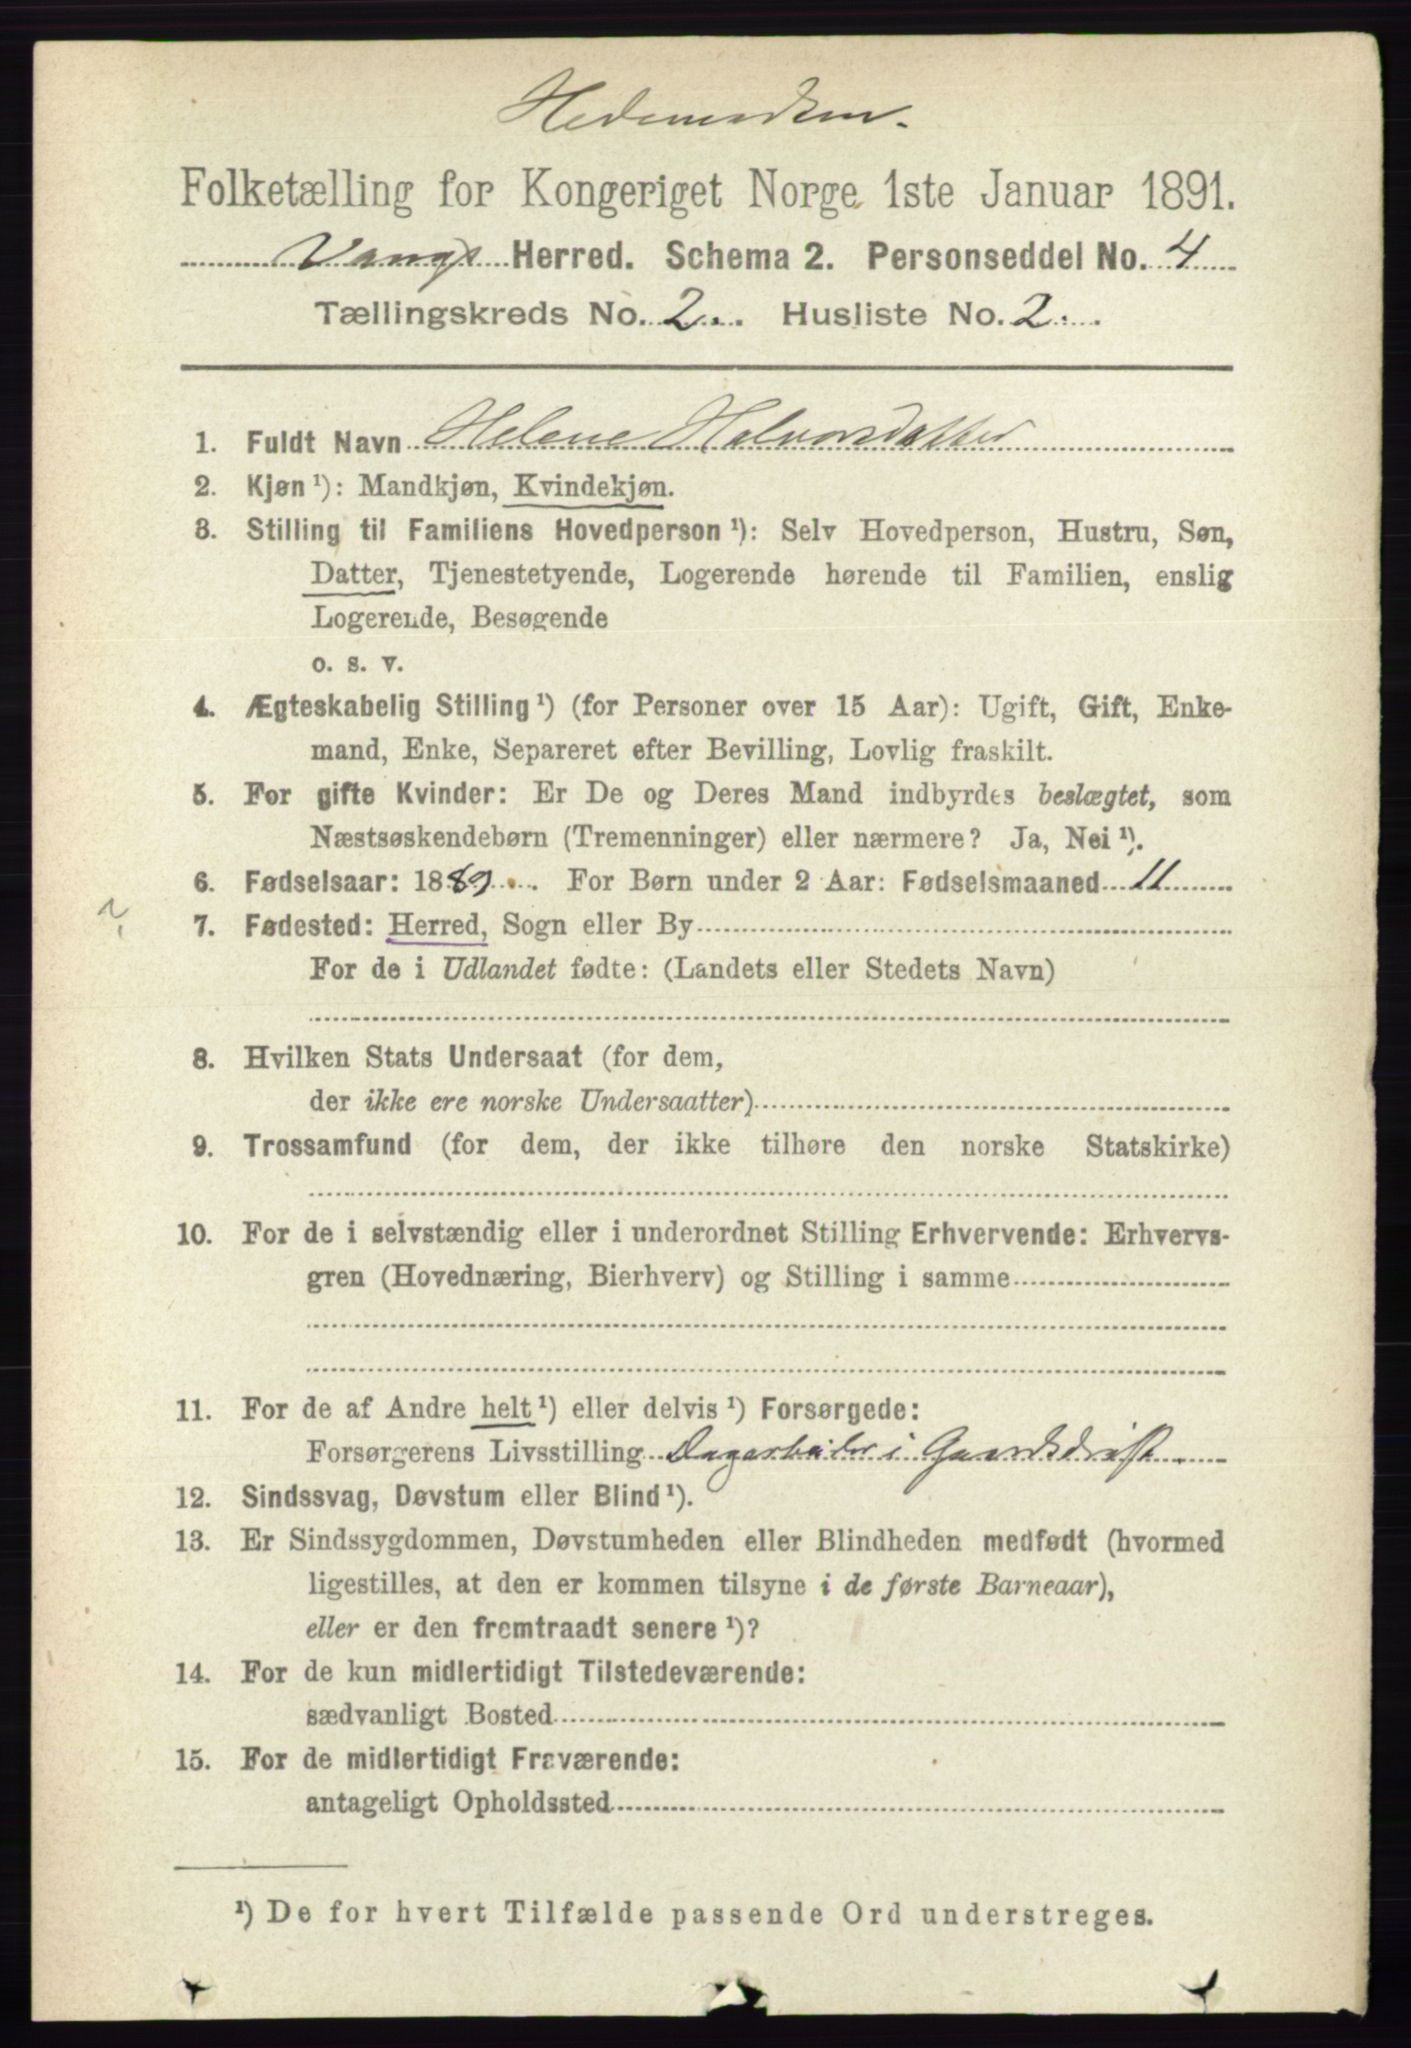 Hedemarken.
Folketælling for Kongeriget Norge 1ste Januar 1891.
Vangs Herred. Schema 2. Personseddel No. 4
Tællingskreds No. 2. Husliste No. 2.
1. Fuldt Navn Helene Halvorsdatter
2. Kjøn ¹): Mandkjøn, Kvindekjøn.
3. Stilling til Familiens Hovedperson ¹): Selv Hovedperson, Hustru, Søn,
Datter, Tjenestetyende, Logerende hørende til Familien, enslig
Logerende, Besøgende
o. s. v.
4. Ægteskabelig Stilling ¹) (for Personer over 15 Aar): Ugift, Gift, Enke-
mand, Enke, Separeret efter Bevilling, Lovlig fraskilt.
5. For gifte Kvinder: Er De og Deres Mand indbyrdes beslægtet, som
Næstsøskendebørn (Tremenninger) eller nærmere? Ja, Nei ¹).
6. Fødselsaar: 1889. For Børn under 2 Aar: Fødselsmaaned 11
7. Fødested: Herred, Sogn eller By
For de i Udlandet fødte: (Landets eller Stedets Navn)
8. Hvilken Stats Undersaat (for dem,
der ikke ere norske Undersaatter)
9. Trossamfund (for dem, der ikke tilhøre den norske Statskirke)
10. For de i selvstændig eller i underordnet Stilling Erhvervende: Erhvervs-
gren (Hovednæring, Bierhverv) og Stilling i samme
11. For de af Andre helt ¹) eller delvis ¹) Forsørgede:
Forsørgerens Livsstilling Dagarbeider i Gaardsdrift.
12. Sindssvag, Døvstum eller Blind ¹).
13. Er Sindssygdommen, Døvstumheden eller Blindheden medfødt (hvormed
ligestilles, at den er kommen tilsyne i de første Barneaar),
eller er den fremtraadt senere ¹)?
14. For de kun midlertidigt Tilstedeværende:
sædvanligt Bosted
15. For de midlertidigt Fraværende:
antageligt Opholdssted
¹) De for hvert Tilfælde passende Ord understreges.